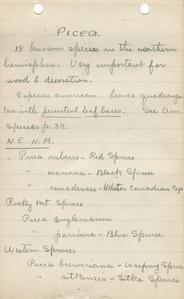 Picea.
18 known species in the northern
hemisphere. Very important for
wood & decoration.
8 species american. Leaves quadrangu-
lar with persistent leaf bases. See Am.
Species p. 39.
N. E. N. A.
Picea rubens - Red Spruce
" mariana - Black Spruce
" canadensis - White Canadian Sp
Rocky Mt. Spruces
Picea Englemanni
" pariana - Blue Spruce
Western Spruces
Picea breweriana - Weeping Spruce
" sitkensis - Sitka Spruce